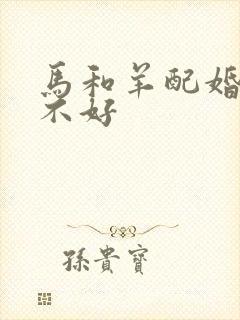 馬和羊配婚
不好
孫貴寶